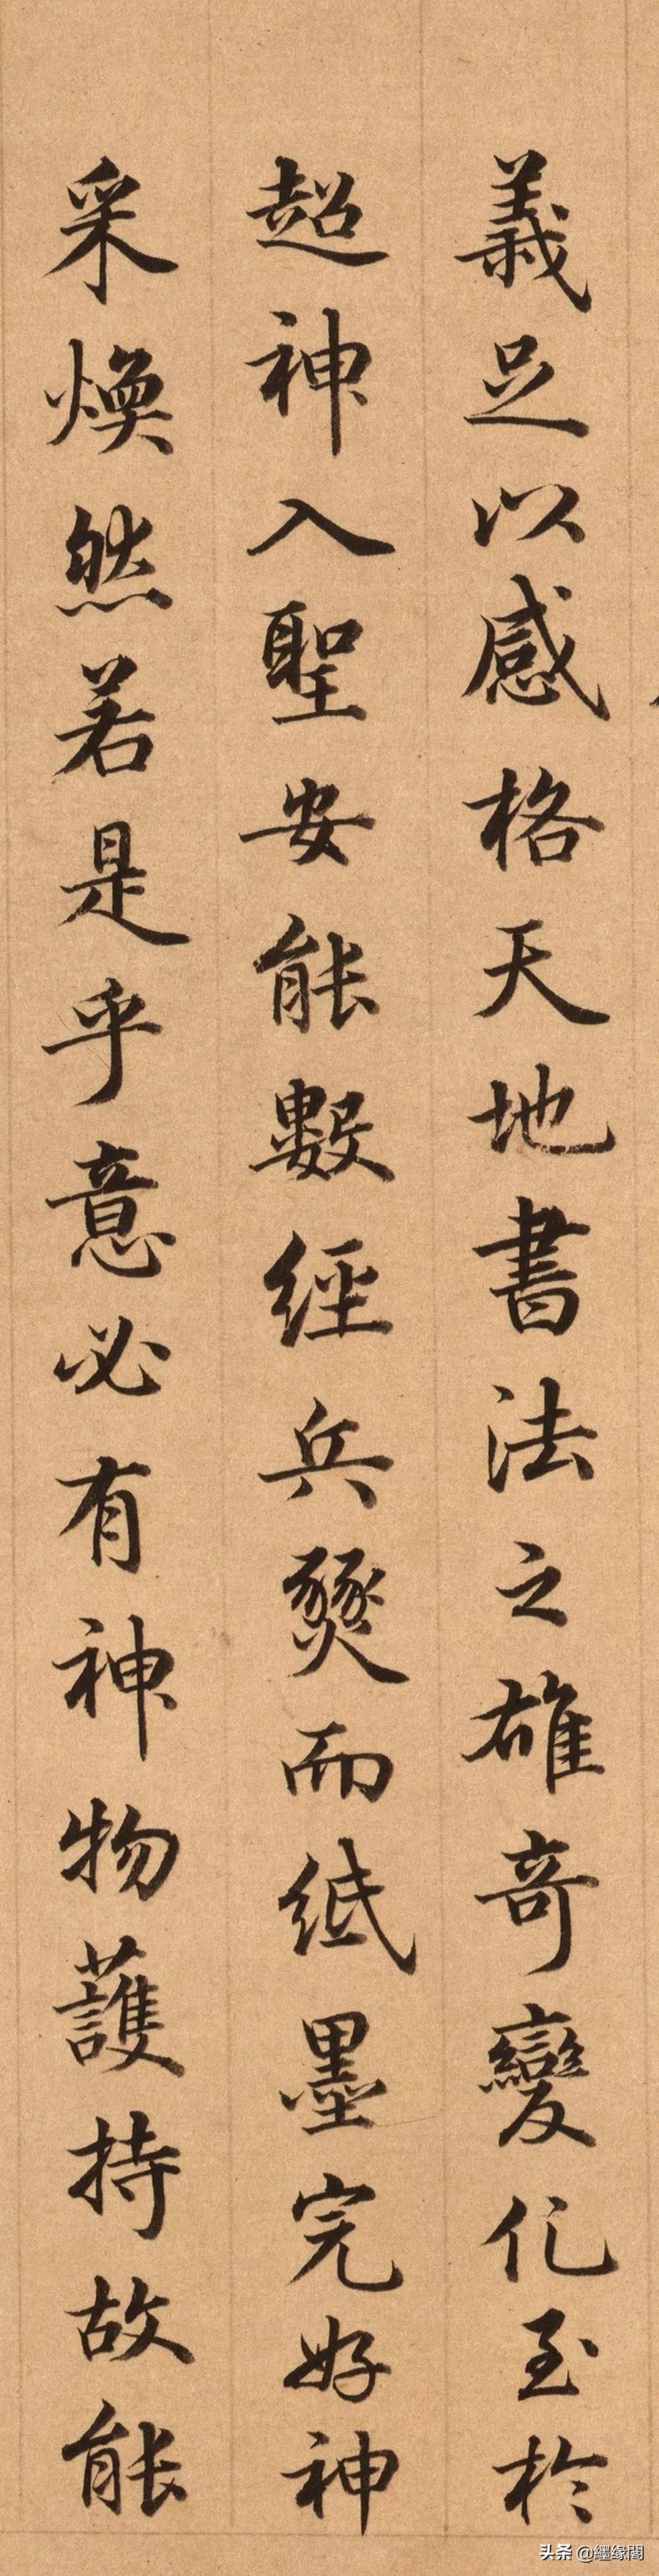 義足以感格天地書法之雄奇變化至於
超神入聖安能數經兵燹而紙墨完好神
采煥然若是乎意必有神物護持故能
头条 @纒缘阁